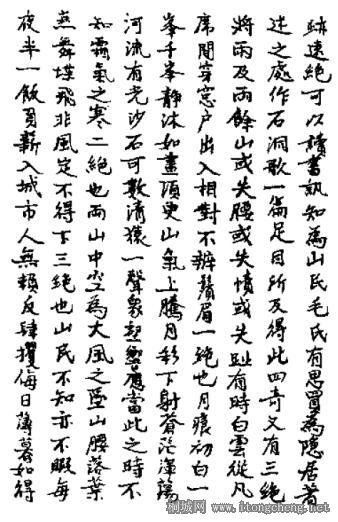 跡遠絕可以讀書訊知為山民毛氏有思買為隱居者
述之處作石洞歌一篇足目所及得此四奇又有三絕
將雨及雨餘山或失腰或失幘或失趾有時白雲從凡
席間穿窓户出入相對不辨鬚眉一絕也月痕初白一
峯千峯靜沐如畫頃更山氣上騰月彩下射蒼茫渾蕩
河流有光沙石可數清猿一聲衆壑響應當此之時不
知霜氣之寒二絕也両山中空為大風之墜山腰落葉
燕舞蝶飛非風定不得下三絕也山民不知亦不暇每
夜半一飲負薪入城市人無賴反肆攫侮日薄暮如得
桐城网 www.itongcheng.com